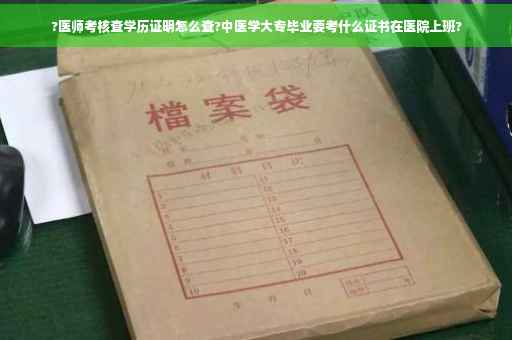 ?医师考核查学历证明怎么查?中医学大专毕业要考什么证书在医院上班?
檔案袋
材料目次
1 11
2 12
3 13
4 14
5 15
6 16
7 17
8 18
9 19
10 20
年 月 日